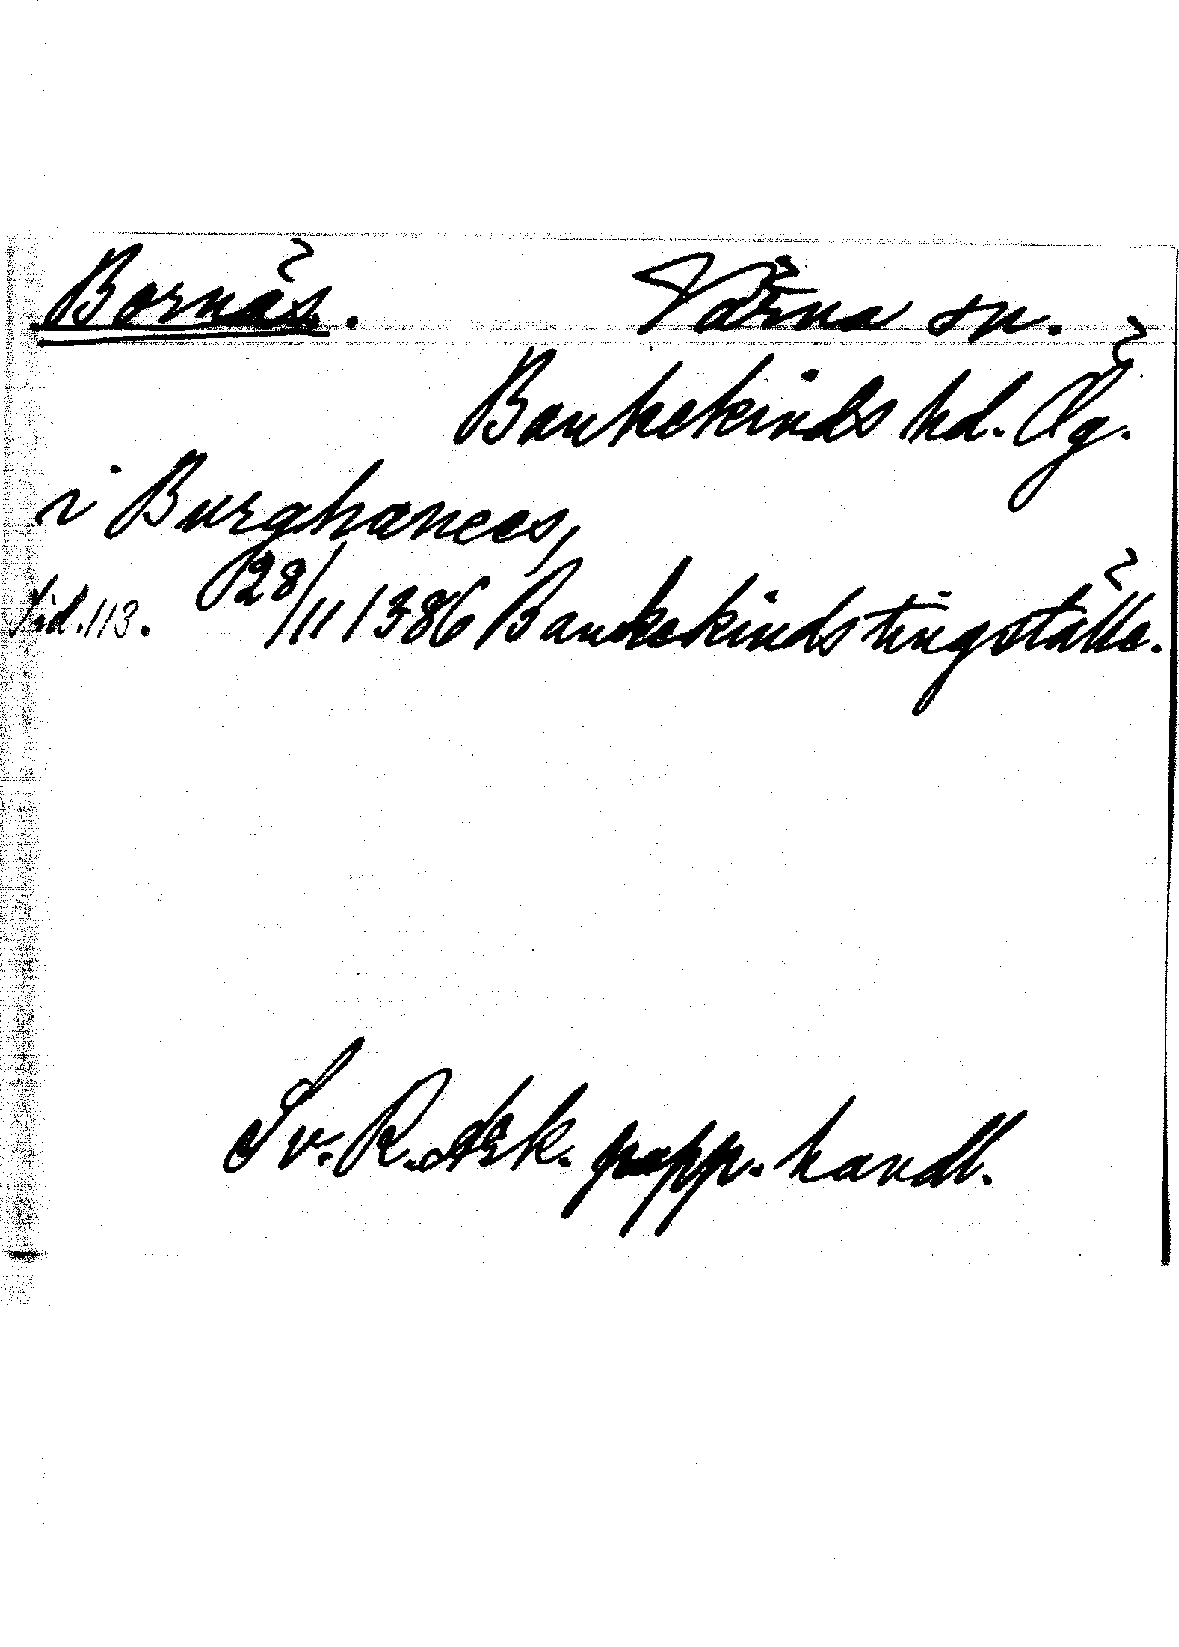 Bornäs. Värna sn.
Bankekinds hd. Ög.
i Burghanees,
Sid. 113. 28/11 1386 Bankekinds tingställe.
Sv. R. ark. papp. handl.